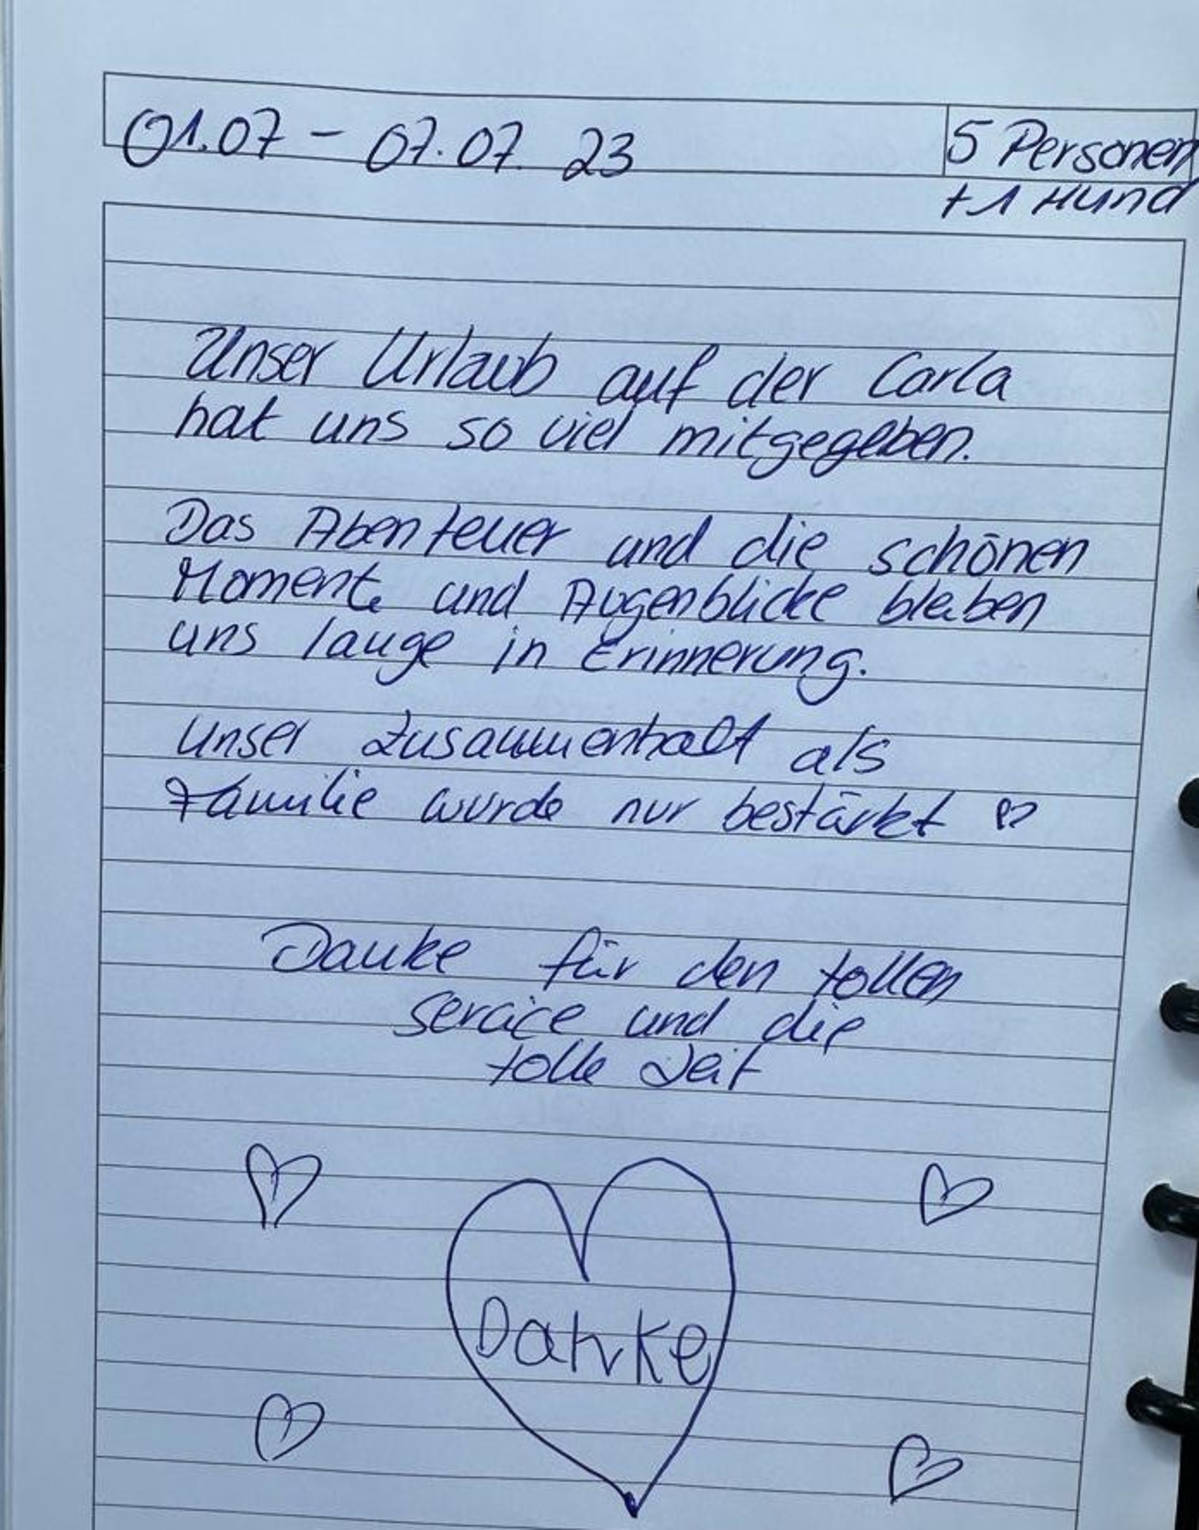 01.07 - 07.07. 23
5 Personen
+ 1 Hund
Unser Urlaub auf der Carla
hat uns so viel mitgegeben.
Das Abenteuer und die schönen
Momente und Augenblicke bleiben
uns lange in Erinnerung.
Unser Zusammenhalt als
Familie wurde nur bestärkt ♡
Danke für den tollen
Service und die
tolle Zeit
Danke